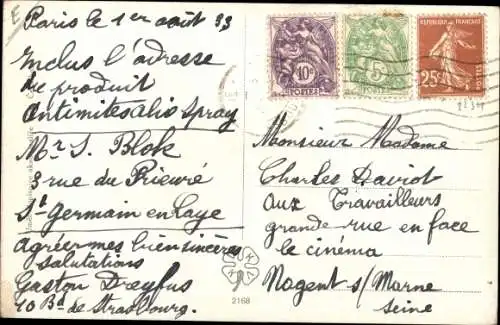 Paris le 1er août 33
Inclus l'adresse
du produit
Antimitesalio Spray
Mr S. Blok
8 rue du Prieuré
St Germain en Laye
Agréer mes bien sincères
salutations
Gaston Dreyfus
40 Bd de Strasbourg.
10c
POSTES
5c
POSTES
REPUBLIQUE FRANÇAISE
25c
Monsieur Madame
Charles Daviot
Aux Travailleurs
grande rue en face
le cinéma
Nogent s/Marne
Seine
2168